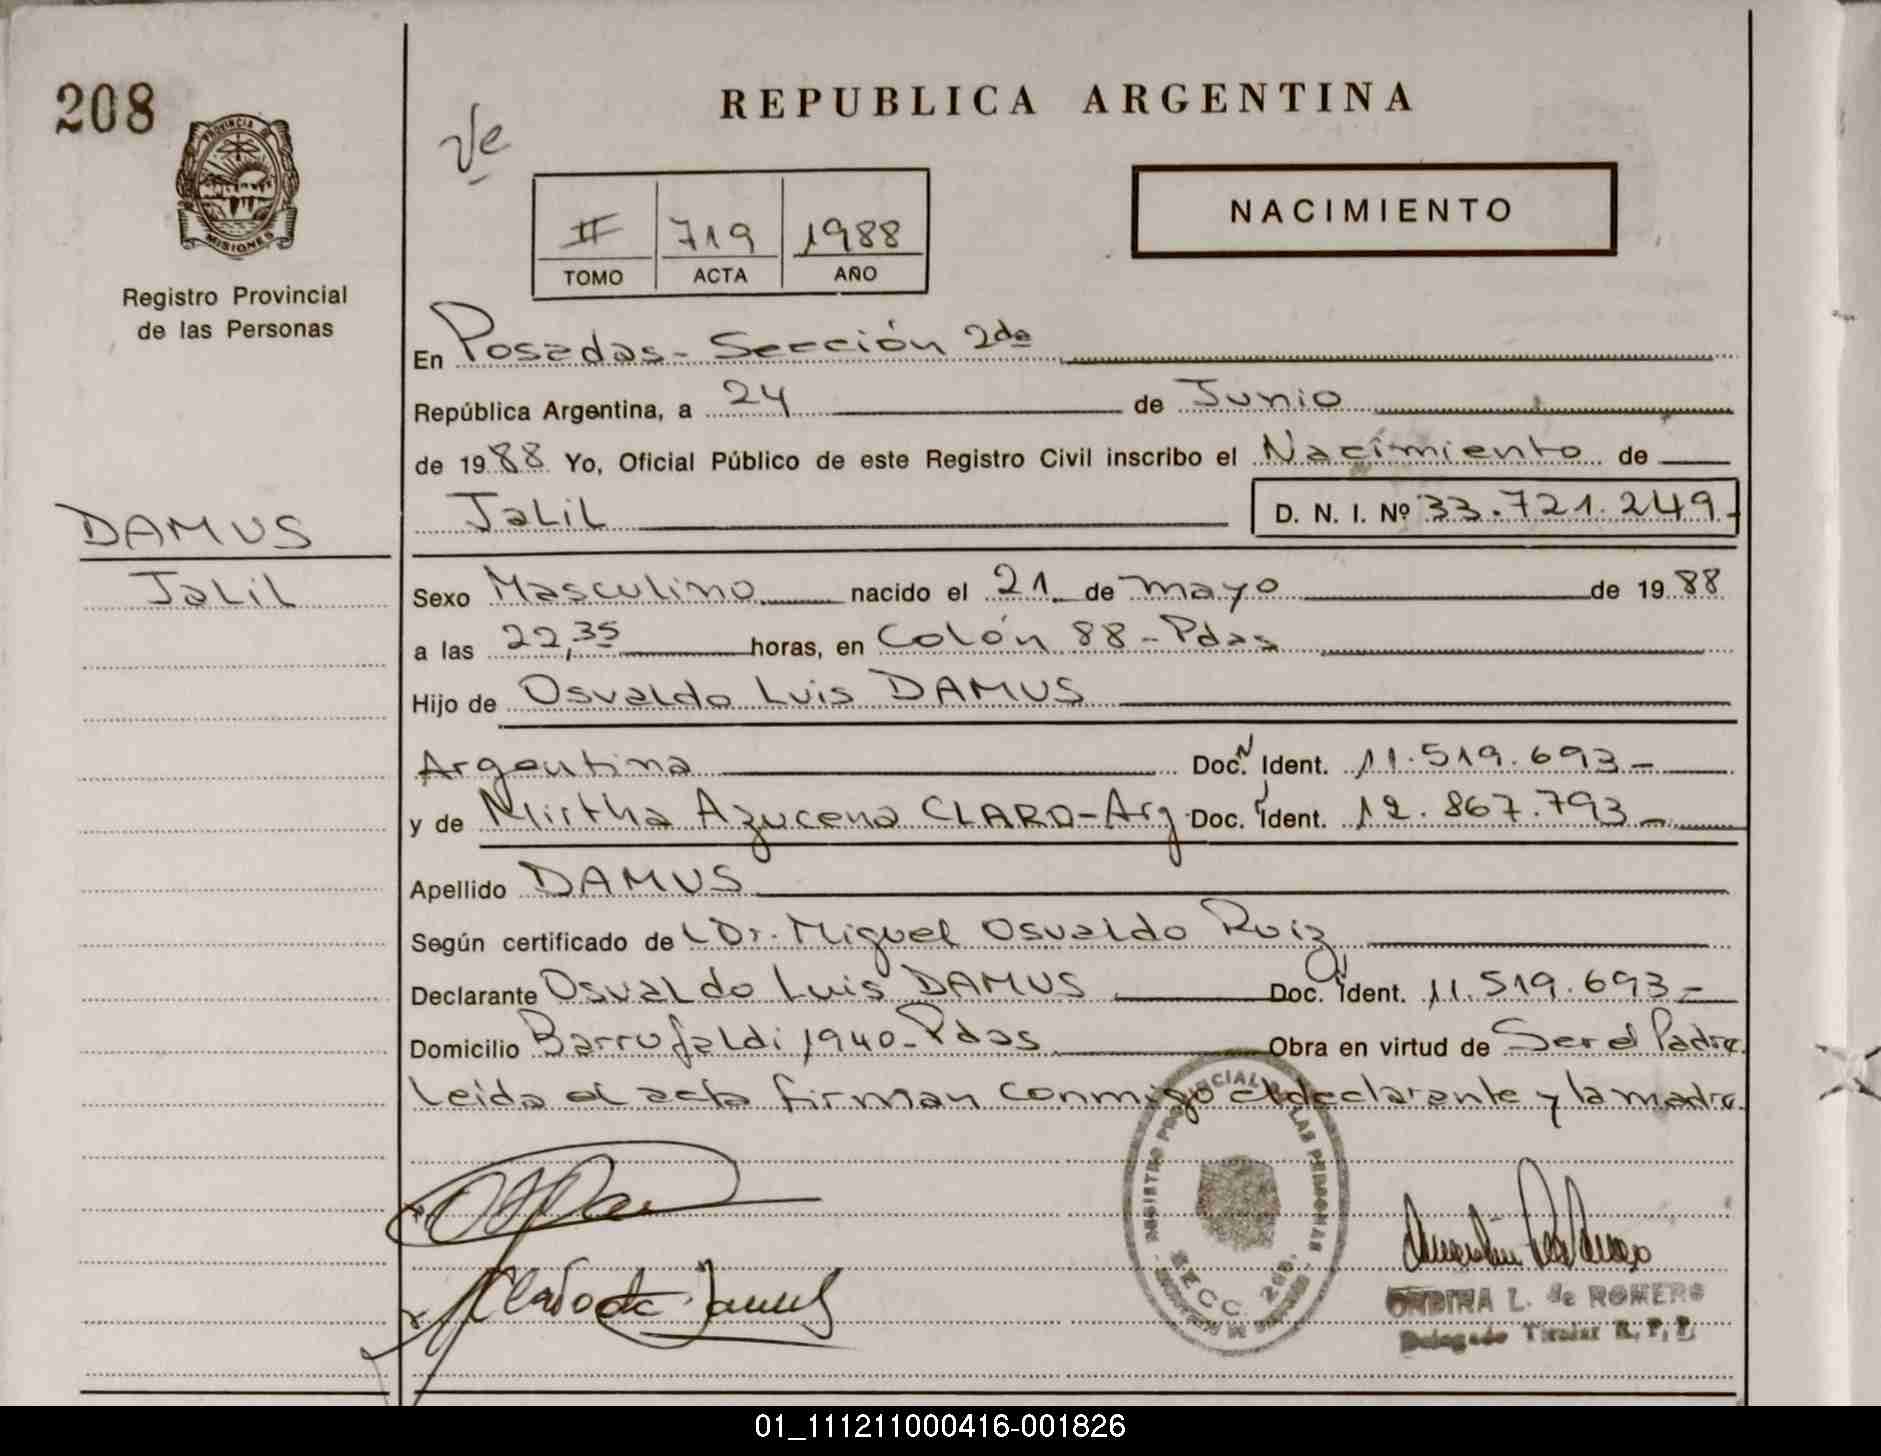 208
PROVINCIA DE
MISIONES
Registro Provincial
de las Personas
DAMUS
JaLiL
REPUBLICA ARGENTINA
Ve
NACIMIENTO
II 719 1988
TOMO ACTA AÑO
En Posadas - Sección 2da
República Argentina, a 24 de Junio
de 1988 Yo, Oficial Público de este Registro Civil inscribo el Nacimiento de
JaLiL D. N. I. Nº 33.721.249-
Sexo Masculino nacido el 21 de mayo de 1988
a las 22,35 horas, en Colón 88 - Pdas
Hijo de Osvaldo Luis DAMUS
Argentina Doc. N Ident. 11.519.693-
y de Mirtha Azucena CLARO-Arg Doc. Ident. 12.867.793-
Apellido DAMUS
Según certificado de Dr. Miguel Osvaldo Ruiz
Declarante Osvaldo Luis DAMUS Doc. Ident. 11.519.693-
Domicilio Barrufaldi 1940-Pdas Obra en virtud de Ser el Padre.
Leida el acta firman conmigo el declarante y la madre.
REGISTRO PROVINCIAL DE LAS PERSONAS
SECC. 2da.
Claro de Damus
ONDINA L. de ROMERO
Delegado Titular R. P. P.
01_111211000416-001826